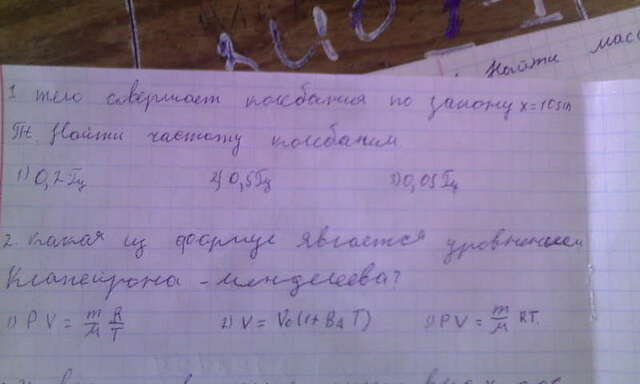 Найти масс
1 тело совершает колебания по закону x=10sin
πt. Найти частоту колебаний.
1) 0,2 Гц 2) 0,5 Гц 3) 0,05 Гц
2. какая из формул является уровнением
Клапейрона - менделеева?
1) PV = m/M R/T 2) V = V₀(1+ T) 3) PV = m/M RT.